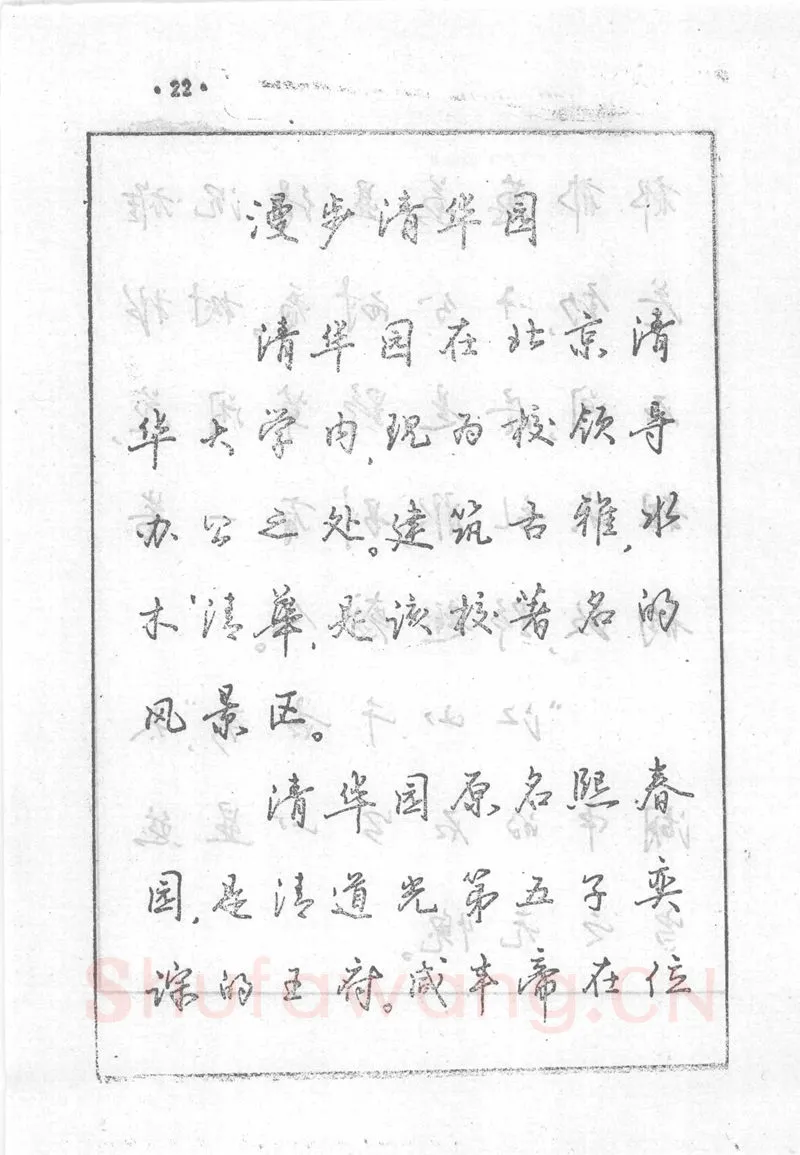 ·22·
漫步清华园
清华园在北京清
华大学内,现为校领导
办公之处。建筑古雅,水
木清华,是该校著名的
风景区。
清华园原名熙春
园,是清道光第五子奕
誴的王府。咸丰帝在位
Shufawang.CN